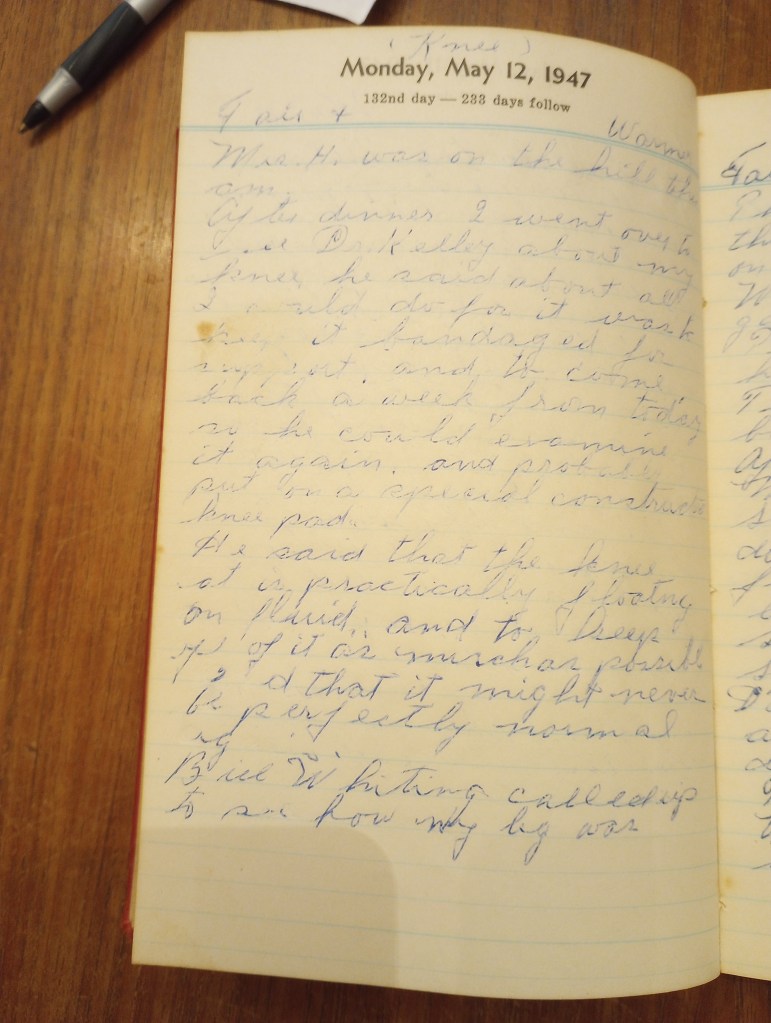 (Knee)
Monday, May 12, 1947
132nd day — 233 days follow
Fair + Warmer
Mrs. H. was on the hill this
a.m.
After dinner I went over to
see Dr Kelley about my
knee, he said about all
I could do for it was to
keep it bandaged for
support, and to come
back a week from today
so he could examine
it again, and probably
put on a special constructed
knee pad.
He said that the knee
is practically floating
on fluid, and to keep
off of it as much as possible
said that it might never
be perfectly normal
Bill Whiting called up
to see how my leg was